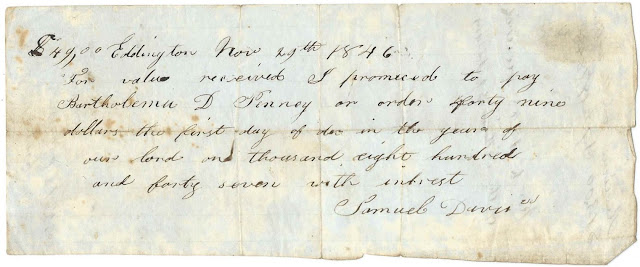 $49,00 Eddington Nov 29th 1846
For value received I promiced to pay
Bartholema D Penney or order forty nine
dollars the first day of dec in the year of
our lord on thousand eight hundred
and forty seven with intrest
Samuel Davis